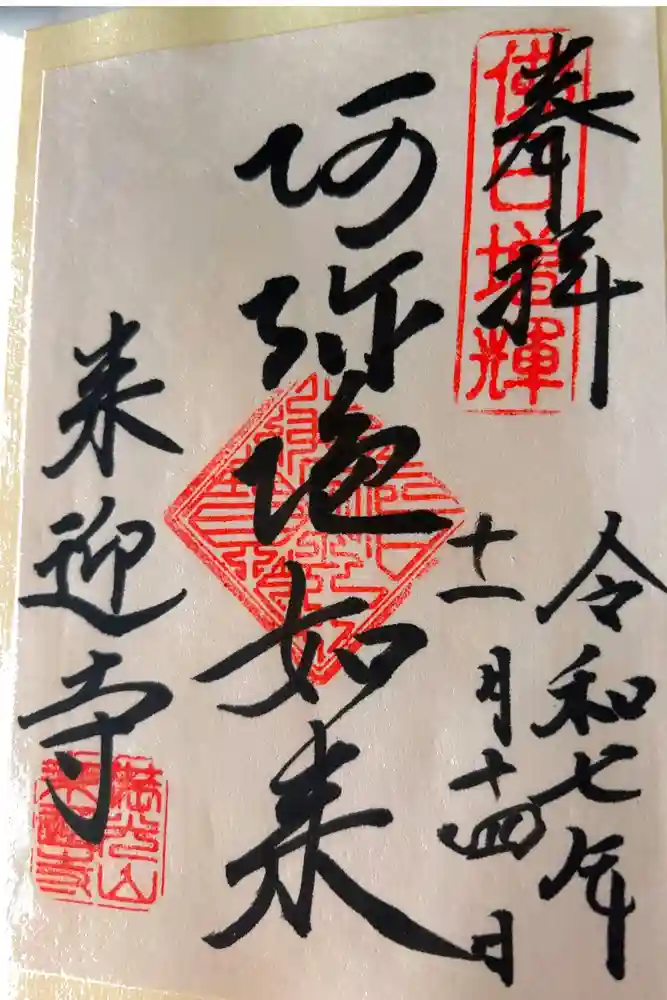 奉拝
佛日増輝
令和七年
十一月十四日
阿弥陀如来
来迎寺